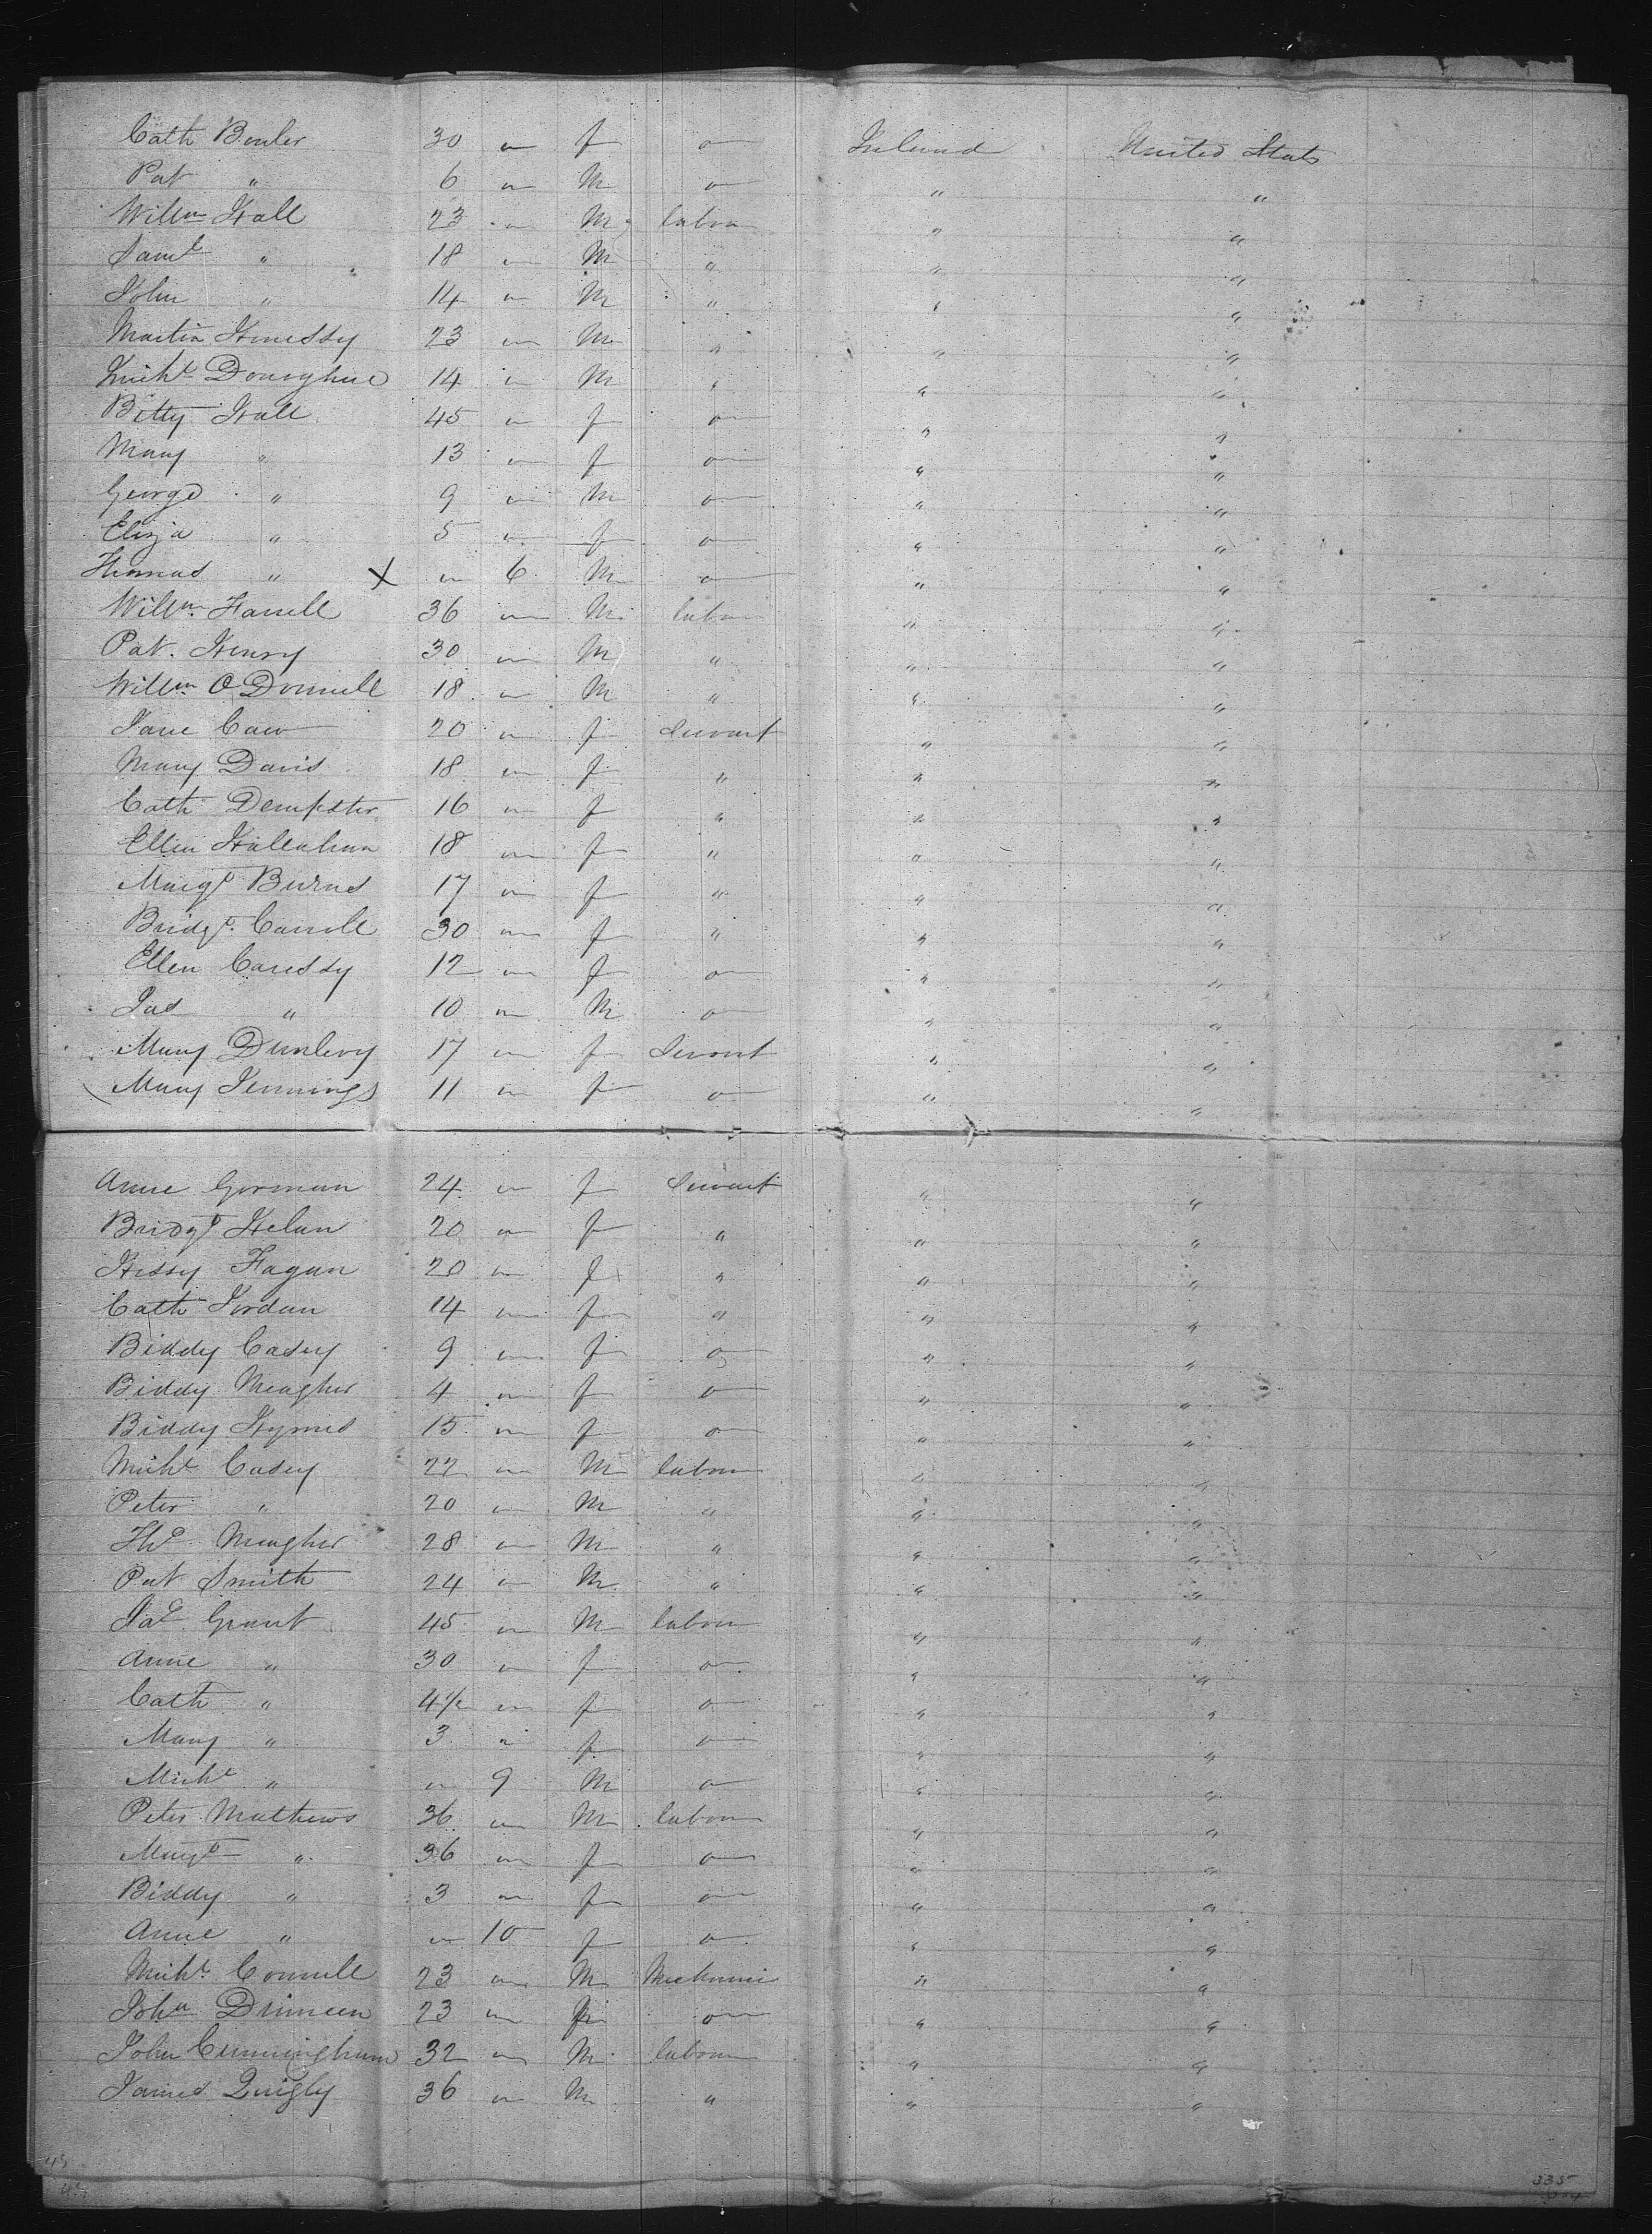 Cath Bouler 30 — f — Ireland United States
Pat " 6 — M — " "
Willm Hall 23 — M labour " "
Saml " 18 — M " " "
John " 14 — M " " "
Martin Hennessy 23 — M " " "
Michl Donoghue 14 — M " " "
Bitty Hall 45 — f — " "
Mary " 13 — f — " "
George " 9 — M — " "
Eliza " 5 — f — " "
Thomas " X — 6 M — " "
Willm Farrell 36 — M labour " "
Pat. Henry 30 — M " " "
Willm O Donnell 18 — M " " "
Jane Caw 20 — f Servant " "
Mary Davis 18 — f " " "
Cath Dempster 16 — f " " "
Ellen Hallahan 18 — f " " "
Margt Burns 17 — f " " "
Bridgt Carroll 30 — f " " "
Ellen Caressy 12 — f — " "
Jas " 10 — M — " "
Mary Dunlevy 17 — f Servant " "
Mary Jennings 11 — f — " "
Anne Gorman 24 — f Servant " "
Bridgt Helan 20 — f " " "
Hessy Fagan 20 — f " " "
Cath Jordan 14 — f " " "
Biddy Casey 9 — f — " "
Biddy Meagher 4 — f — " "
Biddy Hymes 15 — f — " "
Michl Casey 22 — M labour " "
Peter " 20 — M " " "
Ths Meagher 28 — M " " "
Pat Smith 24 — M " " "
Jas Grant 45 — M labour " "
Anne " 30 — f — " "
Cath " 4½ — f — " "
Mary " 3 — f — " "
Michl " — 9 M — " "
Peter Mathews 36 — M labour " "
Margt " 36 — f — " "
Biddy " 3 — f — " "
Anne " — 10 f — " "
Michl Connell 23 — M Mechanic " "
John 23 — — " "
John Cunningham 32 — M labour " "
James Quigly 36 — M " " "
335